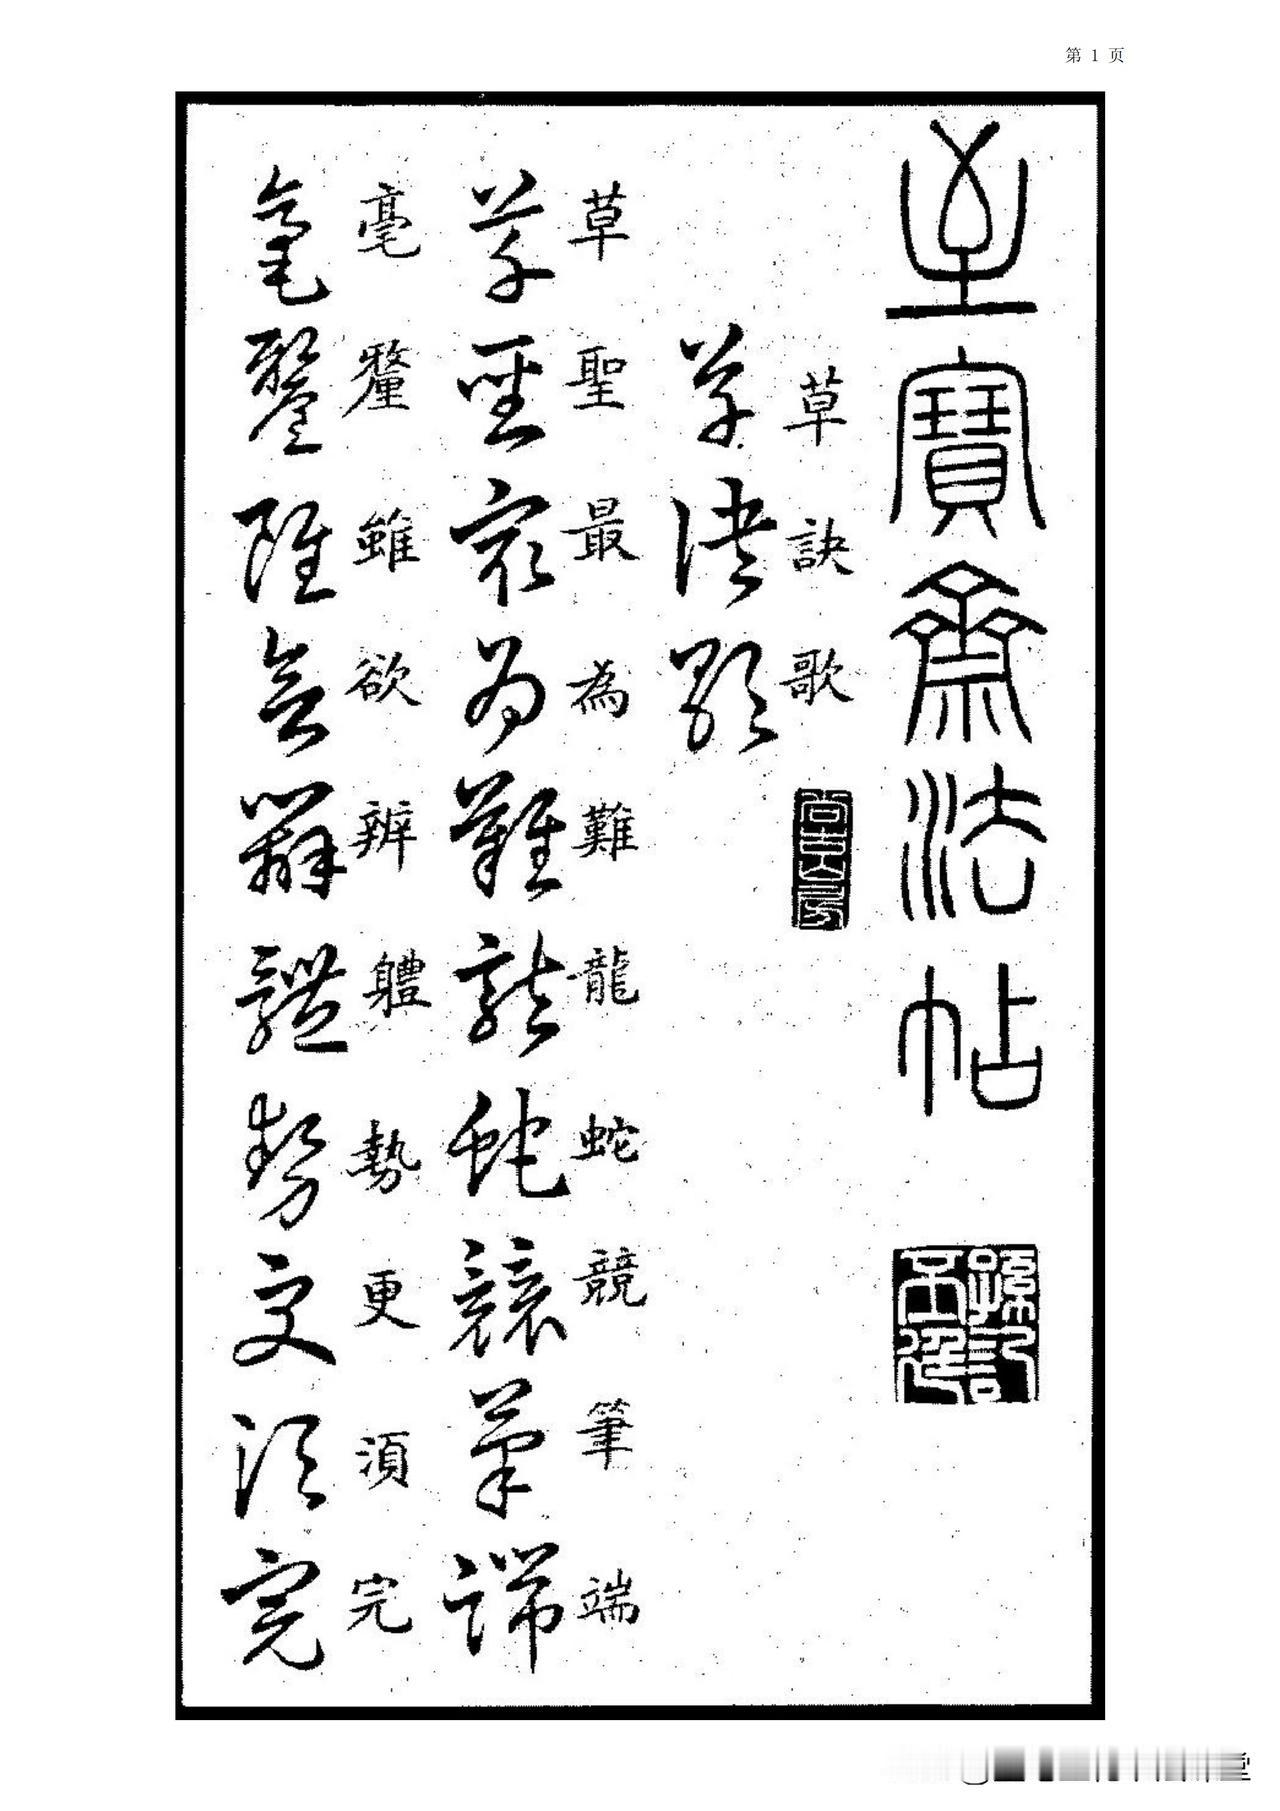 第 1 页
至寶齋法帖
草訣歌
草訣歌
草聖最為難龍蛇競筆端
草聖最為難龍蛇競筆端
毫釐雖欲辨軆勢更須完
毫釐雖欲辨體勢更須完